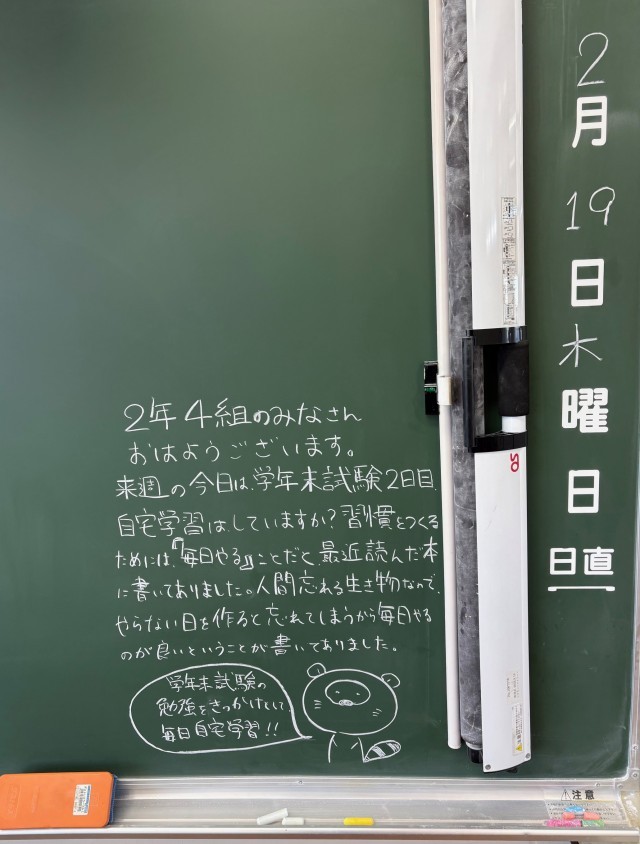 2年4組のみなさん
おはようございます。
来週の今日は、学年末試験2日目.
自宅学習は、していますか?習慣をつくる
ためには、『毎日やる』ことだと、最近読んだ本
に書いてありました。人間忘れる生き物なので、
やらない日を作ると忘れてしまうから毎日やる
のが良いということが書いてありました。
学年末試験の
勉強をきっかけとして
毎日自宅学習!!
2月19日木曜日
日直
注意